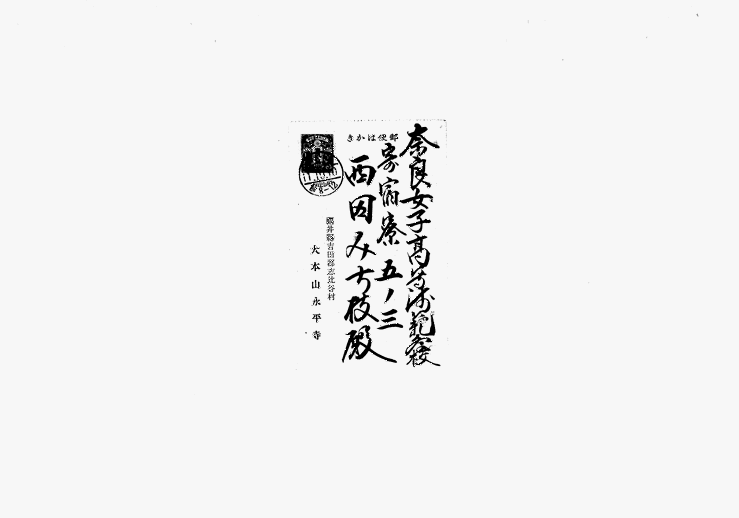 郵便はかき
奈良女子高等師範学校
寄宿寮 五ノ三
西田みち枝殿
福井縣吉田郡志比谷村
大本山永平寺